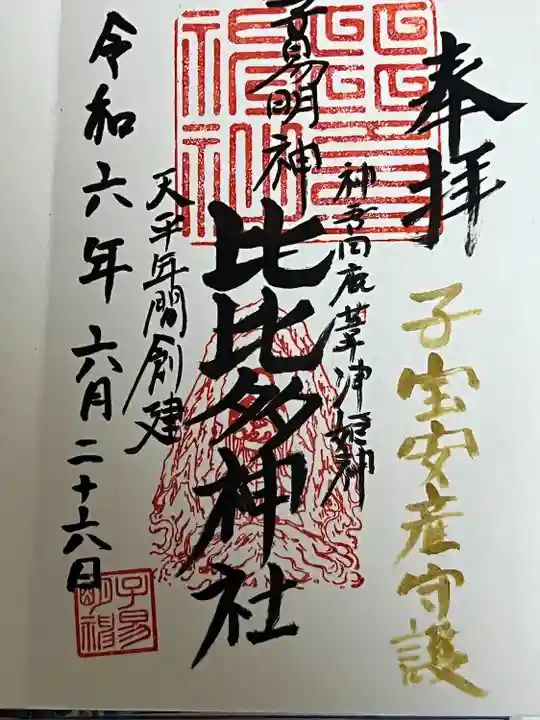 奉拝
子宝安産守護
神吾田鹿葦津姫神
子易明神
比比多神社
天平年間創建
令和六年六月二十六日
子易明神